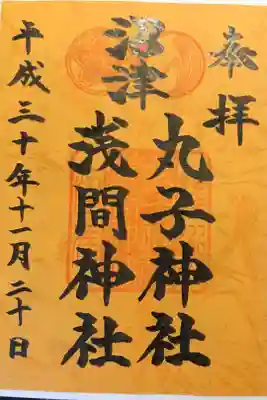 奉拝
沼津
丸子神社
浅間神社
平成三十年十一月二十日